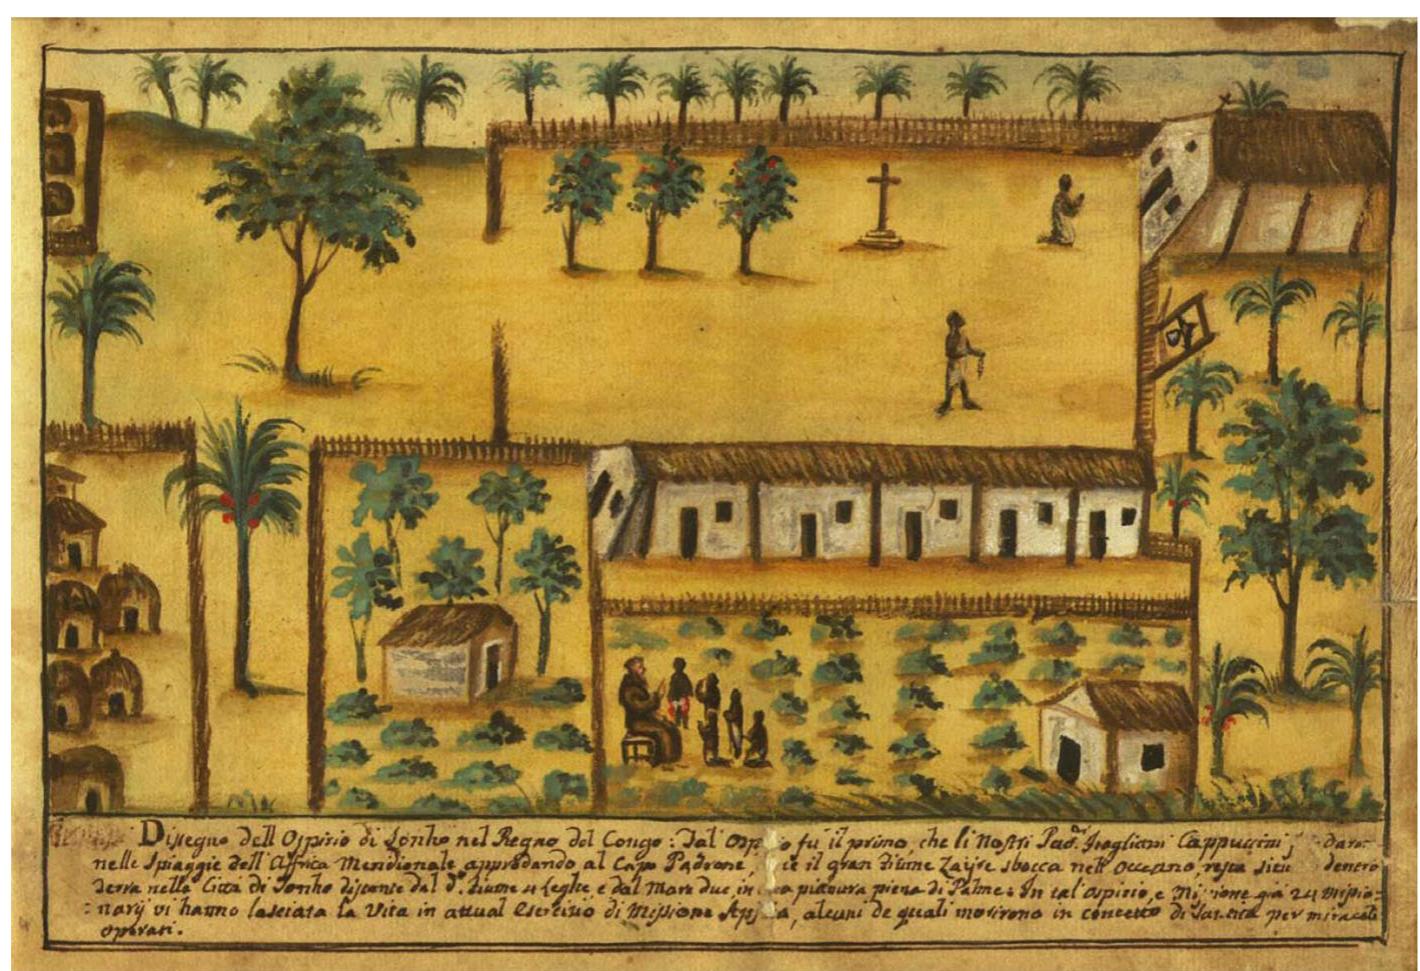 Dissegno dell Ospizio di Sonho nel Regno del Congo: Tal Osp o fu il primo, che li Nostri Pad. Cappuccini;
nelle Spiaggie dell'Affrica Meridionale approdando al Capo Padrone, ce il gran fiume Zaire sbocca nell' Occeano, resta
terra nella Città di Sonho distante dal d. fiume 4 leghe e dal Mare due, in pianura piena di Palme: In tal ospizio, e Mis ione già 24 missio=
:narij vi hanno lasciata la Vita in attual Esercizio di Missione Ap, alcuni de quali morirono in concetto di per miracoli
operati.